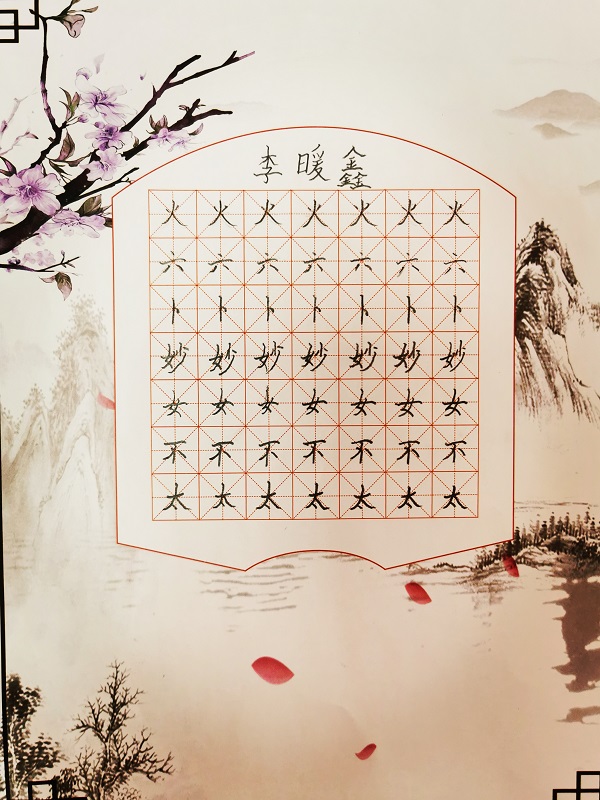 李暖鑫
火火火火火火火
六六六六六六六
卜卜卜卜卜卜卜
妙妙妙妙妙妙妙
女女女女女女女
不不不不不不不
太太太太太太太